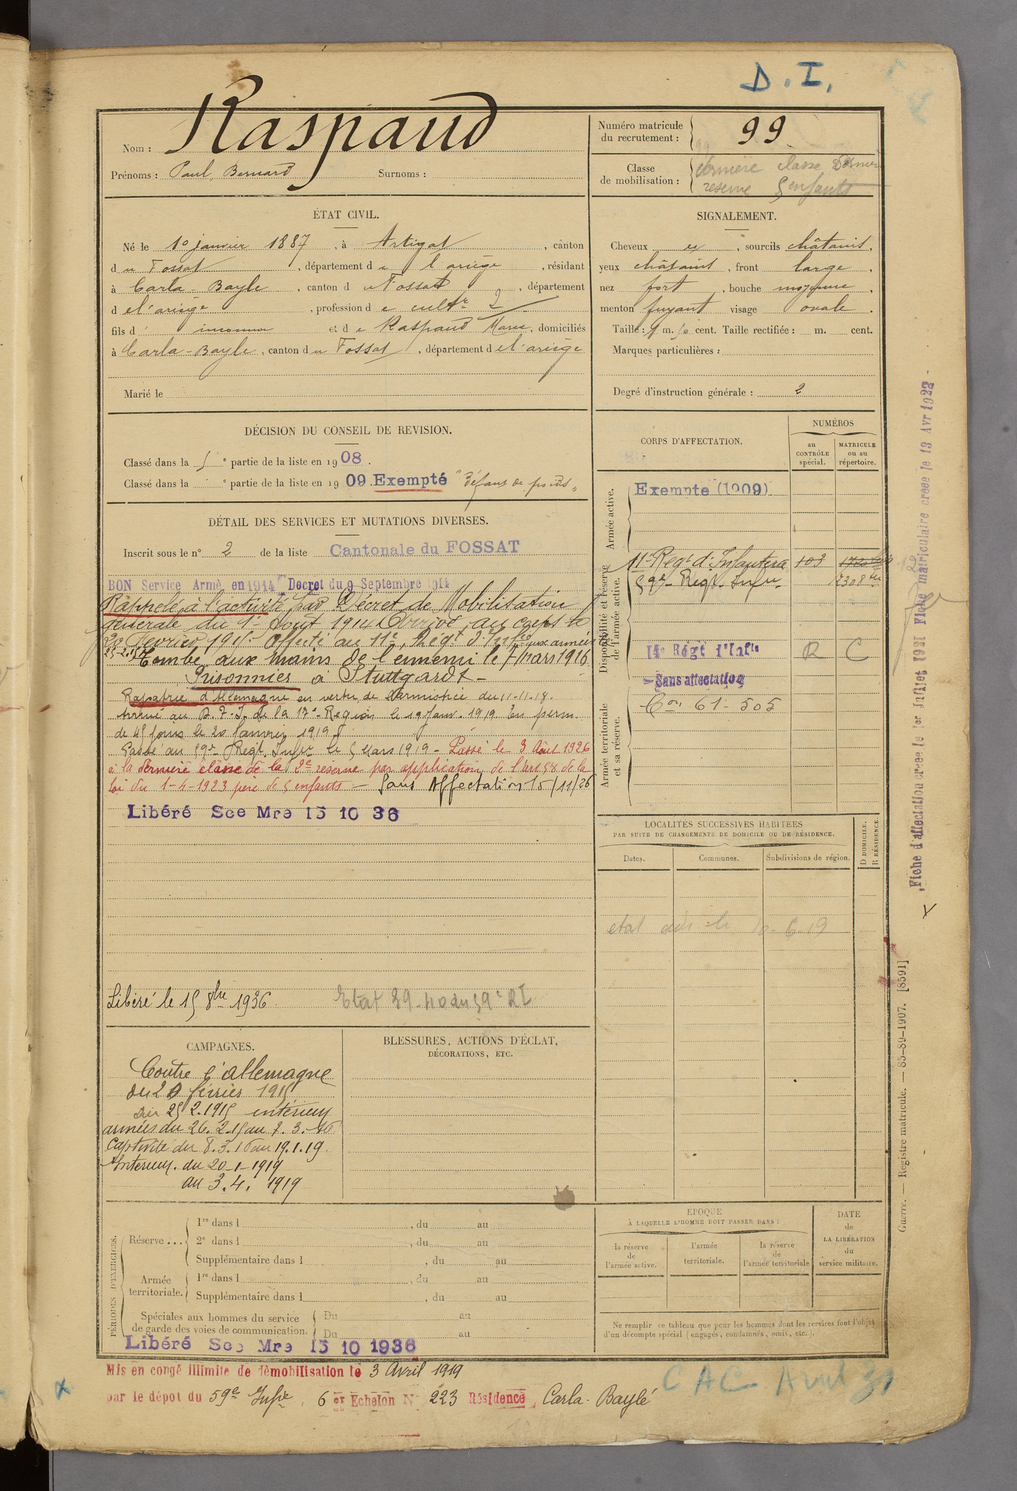 D. I.
Nom : Raspaud
Prénoms : Paul, Bernard Surnoms :
Numéro matricule du recrutement : 99
Classe de mobilisation : dernière classe Dernier
reserve 5 enfants
ÉTAT CIVIL.
Né le 10 janvier 1887, à Artigat, canton
du Fossat, département de l'ariège, résidant
à Carla-Bayle, canton du Fossat, département
de l'ariège, profession de cultr 2
fils d' inconnu et de Raspaud Marie, domiciliés
à Carla-Bayle, canton du Fossat, département de l'ariège
Marié le
SIGNALEMENT.
Cheveux , sourcils châtains,
yeux châtains, front large,
nez fort, bouche moyenne,
menton fuyant visage ovale.
Taille : 1 m. cent. Taille rectifiée : m. cent.
Marques particulières :
Degré d'instruction générale : 2
DÉCISION DU CONSEIL DE REVISION.
Classé dans la partie de la liste en 1908.
Classé dans la partie de la liste en 1909 Exempté
DÉTAIL DES SERVICES ET MUTATIONS DIVERSES.
Inscrit sous le n° 2 de la liste Cantonale du FOSSAT
BON Service Armé, en 1914 Décret du 9 Septembre 1914
Rappelé à l'activité par Décret de Mobilisation
générale du 1er Aout 1914. Arrivé au corps le
20 Fevrier 1915. Affecté au 11e Régt d'Infie aux armées
25-2-15. Tombé aux mains de l'ennemi le 7 mars 1916
Prisonnier à Stuttgard
Rapatrié d'Allemagne en vertu de l'armistice du 11-11-18.
Arrivé au D. T. I. de la 17e Région le 19 Janv. 1919 En perm.
de 45 jours le 20 Janvier 1919
Passé au 59e Regt Infie le 5 Mars 1919 - Passé le 3 Août 1926
à la dernière classe de la 2e réserve par application de l'art 58 de la
loi du 1-4-1923 père de 5 enfants - Sans Affectation 15/11/26
Libéré Sce Mre 15 10 36
Libéré le 15 8bre 1936 Etat 39-40 du 59e RI
CORPS D'AFFECTATION.
NUMÉROS
au CONTRÔLE spécial.
MATRICULE ou au répertoire.
Armée active.
Exempte (1909)
Disponibilité et réserve de l'armée active.
11e Regt d'Infanterie 103
59e Regt Infie
14e Régt d'Infie R C
Sans affectation
Armée territoriale et sa réserve.
61-505
LOCALITÉS SUCCESSIVES HABITÉES
PAR SUITE DE CHANGEMENTS DE DOMICILE OU DE RÉSIDENCE.
Dates. Communes. Subdivisions de région. D DOMICILE. R RÉSIDENCE.
etat le 10-6-19
CAMPAGNES.
Contre l'allemagne
du 20 février 1915
au 25.2.1915 intérieur
armées du 26.2.15 au 7.3.16
Captivité du 8.3.16 au 19.1.19.
Interieur. du 20-1-1919
au 3.4.1919
BLESSURES, ACTIONS D'ÉCLAT,
DÉCORATIONS, ETC.
PÉRIODES D'EXERCICES.
Réserve.... 1re dans l , du au
2e dans l , du au
Supplémentaire dans l , du au
Armée territoriale. 1re dans l , du au
Supplémentaire dans l , du au
Spéciales aux hommes du service Du au
de garde des voies de communication. Du au
Libéré Sce Mre 15 10 1936
ÉPOQUE
À LAQUELLE L'HOMME DOIT PASSER DANS :
la réserve de l'armée active.
l'armée territoriale.
la réserve de l'armée territoriale
DATE de LA LIBÉRATION du service militaire.
Ne remplir ce tableau que pour les hommes dont les services font l'objet
d'un décompte spécial (engagés, condamnés, omis, etc.).
Mis en congé illimité de démobilisation le 3 Avril 1919
par le dépôt du 59e Infie, 6 er Echelon N° 223 Résidence, Carla-Baylé
CAC Avril 31
Fiche d'affectation créée le 1er Juillet 1921 Fiche matriculaire créée le 13 Avr 1922
Guerre. — Registre matricule. — 85-89-1907. [8591]